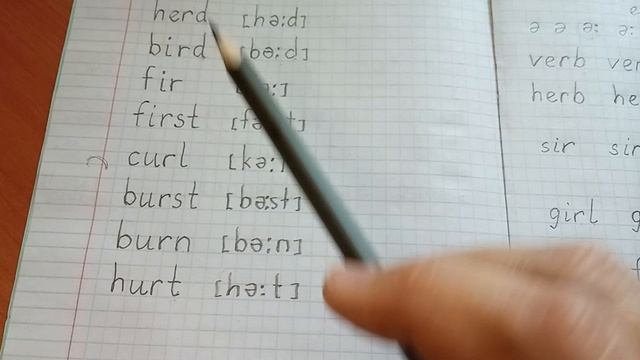 herd [hə:d]
bird [bə:d]
fir
first
curl [kə:
burst [bə:st]
burn [bə:n]
hurt [hə:t]
ə ə ə: ə:
verb ver
herb he
sir sir
girl g